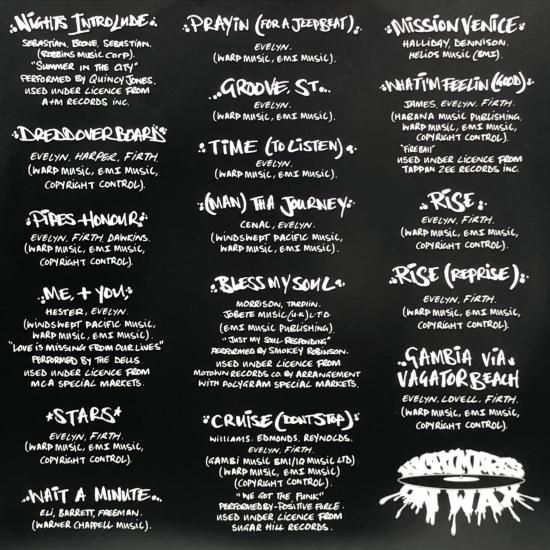 NIGHTS INTROLUDE
SEBASTIAN, BOONE, SEBASTIAN.
(ROBBINS MUSIC CORP)
"SUMMER IN THE CITY"
PERFORMED BY QUINCY JONES.
USED UNDER LICENCE FROM
A+M RECORDS INC.
DREDDOVERBOARD
EVELYN, HARPER, FIRTH.
(WARP MUSIC, EMI MUSIC,
COPYRIGHT CONTROL).
PIPES HONOUR
EVELYN, FIRTH DAWKINS.
(WARP MUSIC, EMI MUSIC,
COPYRIGHT CONTROL).
ME + YOU
HESTER, EVELYN.
(WINDSWEPT PACIFIC MUSIC,
WARP MUSIC, EMI MUSIC).
"LOVE IS MISSING FROM OUR LIVES"
PERFORMED BY THE DELLS
USED UNDER LICENCE FROM
MCA SPECIAL MARKETS.
*STARS*
EVELYN, FIRTH.
(WARP MUSIC, EMI MUSIC,
COPYRIGHT CONTROL).
WAIT A MINUTE...
ELI, BARRETT, FREEMAN.
(WARNER CHAPPELL MUSIC).
PRAYIN (FOR A JEEPBEAT)
EVELYN.
(WARP MUSIC, EMI MUSIC).
GROOVE ST...
EVELYN.
(WARP MUSIC, EMI MUSIC).
TIME (TO LISTEN)
EVELYN.
(WARP MUSIC, EMI MUSIC).
(MAN) THA JOURNEY
CENAC, EVELYN.
(WINDSWEPT PACIFIC MUSIC,
WARP MUSIC, EMI MUSIC).
BLESS MY SOUL
MORRISON, TARPLIN.
JOBETE MUSIC (U.K) LTD
(EMI MUSIC PUBLISHING).
"JUST MY SOUL RESPONDING"
PERFORMED BY SMOKEY ROBINSON.
USED UNDER LICENCE FROM
MOTOWN RECORDS CO BY ARRANGEMENT
WITH POLYGRAM SPECIAL MARKETS.
CRUISE (DONT STOP)
WILLIAMS. EDMONDS, REYNOLDS.
EVELYN, FIRTH.
(GAMBI MUSIC BMI/IQ MUSIC LTD)
(WARP MUSIC, EMI MUSIC)
(COPYRIGHT CONTROL).
"WE GOT THE FUNK"
PERFORMED BY - POSITIVE FORCE.
USED UNDER LICENCE FROM
SUGAR HILL RECORDS.
MISSION VENICE
HALLIDAY, DENNISON.
HELIOS MUSIC (EMI).
WHAT I'M FEELIN (GOOD)
JAMES, EVELYN, FIRTH.
(HABANA MUSIC PUBLISHING,
WARP MUSIC, EMI MUSIC,
COPYRIGHT CONTROL)
"FIREBALL"
USED UNDER LICENCE FROM
TAPPAN ZEE RECORDS INC.
RISE
EVELYN, FIRTH.
(WARP MUSIC, EMI MUSIC,
COPYRIGHT CONTROL).
RISE (REPRISE)
EVELYN, FIRTH.
(WARP MUSIC, EMI MUSIC,
COPYRIGHT CONTROL).
GAMBIA VIA
VAGATOR BEACH
EVELYN, LOVELL, FIRTH.
(WARP MUSIC, EMI MUSIC,
COPYRIGHT CONTROL).
NIGHTMARES
ON WAX